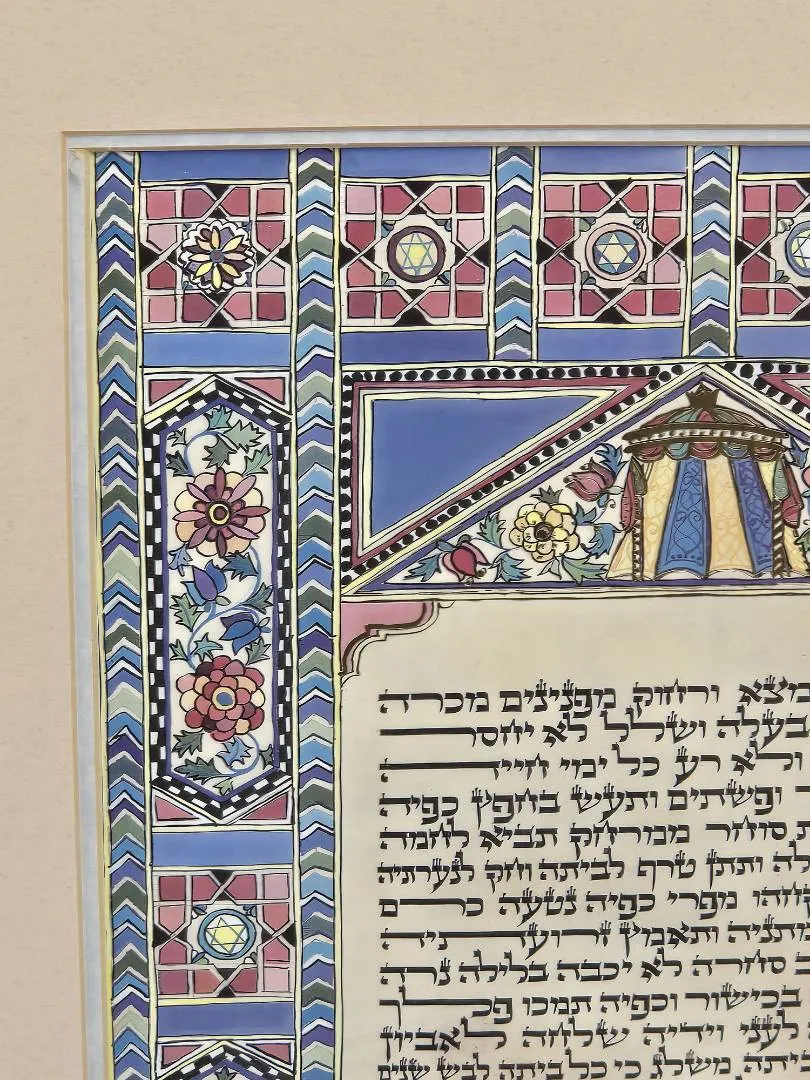 מצא ורחוק מפנינים מכרה
בעלה ושלל לא יחסר
ולא רע כל ימי חייה
ופשתים ותעש בחפץ כפיה
ת סוחר ממרחק תביא לחמה
לה ותתן טרף לביתה וחק לנערתיה
קחהו מפרי כפיה נטעה כרם
מתניה ותאמץ זרועתיה
ב סחרה לא יכבה בלילה נרה
בכישור וכפיה תמכו פלך
לעני וידיה שלחה לאביון
יתה משלג כי כל ביתה לבש שנים